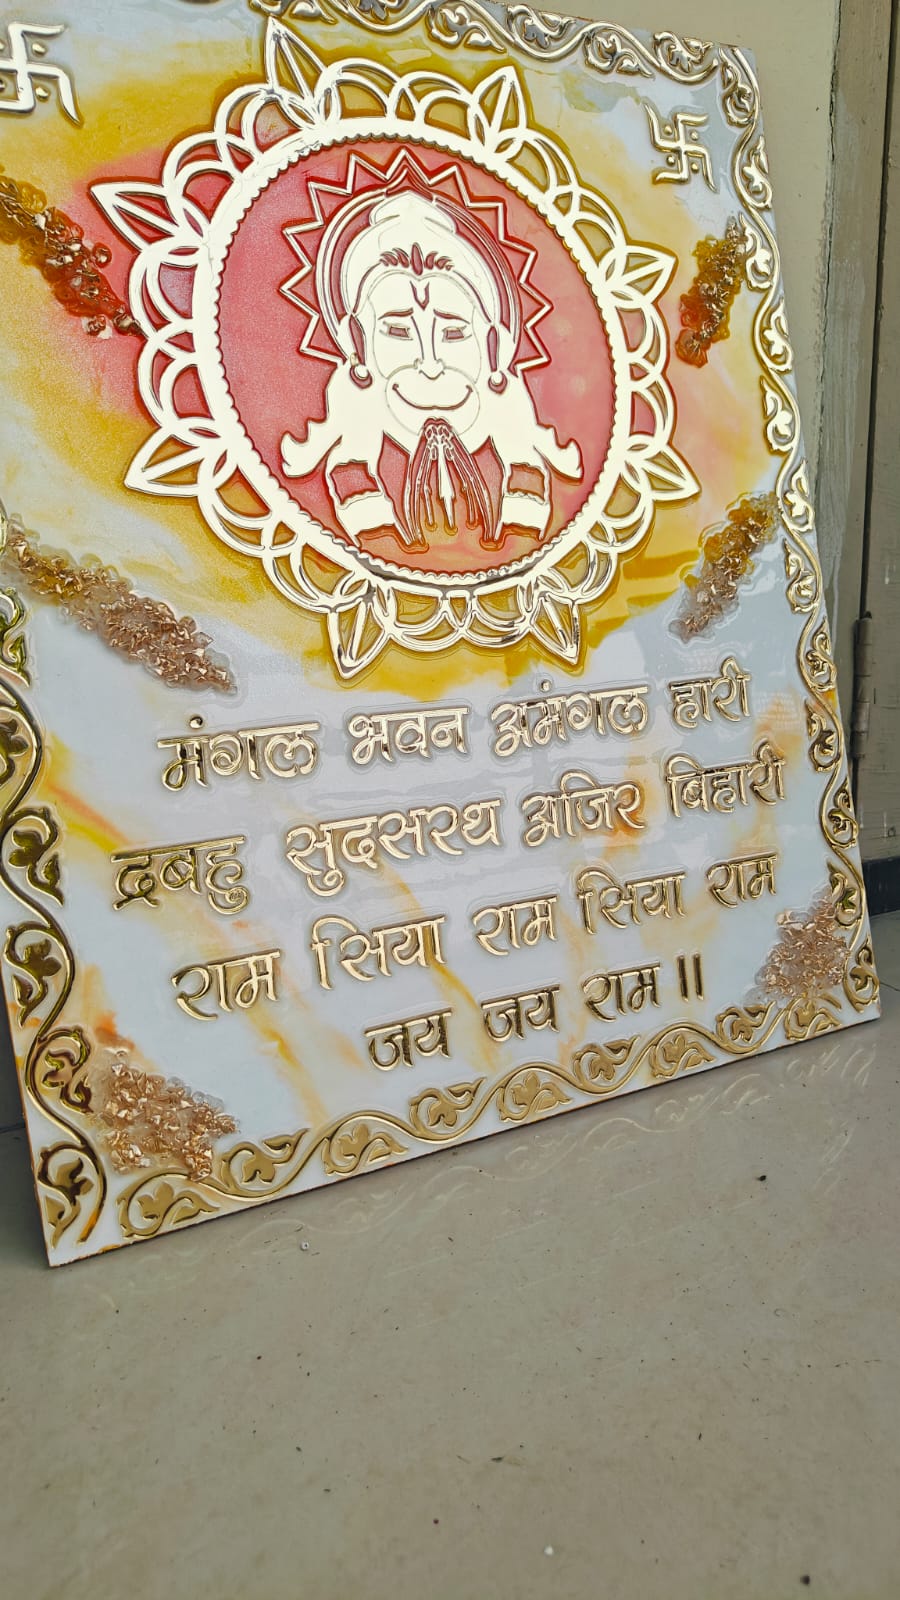 मंगल भवन अमंगल हारी
द्रबहु सुदसरथ अजिर बिहारी
राम सिया राम सिया राम
जय जय राम ॥